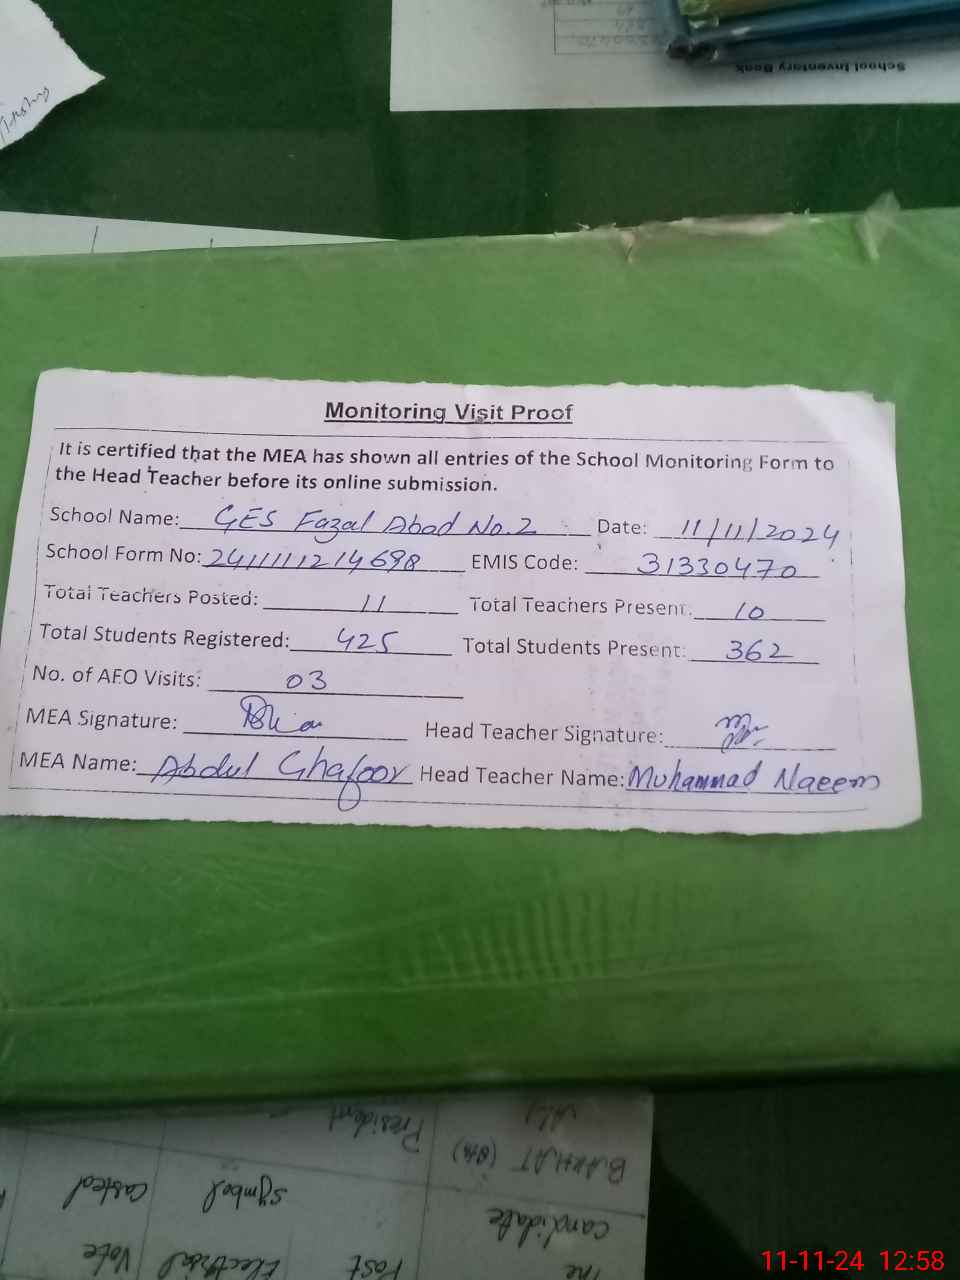 School Inventory Book
Monitoring Visit Proof
It is certified that the MEA has shown all entries of the School Monitoring Form to
the Head Teacher before its online submission.
School Name: GES Fazal Abad No.2 Date: 11/11/2024
School Form No: 241111121 4698 EMIS Code: 31330470
Total Teachers Posted: 11 Total Teachers Present: 10
Total Students Registered: 425 Total Students Present: 362
No. of AFO Visits: 03
MEA Signature: Head Teacher Signature:
MEA Name: Abdul Ghafoor Head Teacher Name: Muhammad Naeem
The Post Electoral Vote
candidate symbol casted
BAKHAT (8th) President
ALI
11-11-24 12:58